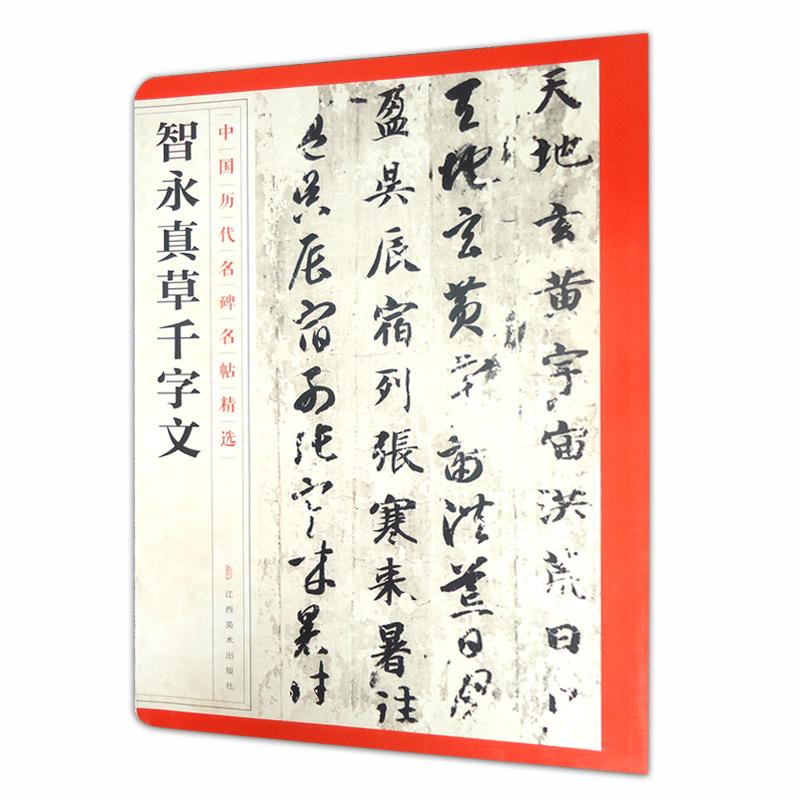 天地玄黄宇宙洪荒日
天地玄黄宇宙洪荒日月
盈昃辰宿列張寒来暑往
盈昃辰宿列張寒来暑往
中国历代名碑名帖精选
江西美术出版社
智永真草千字文